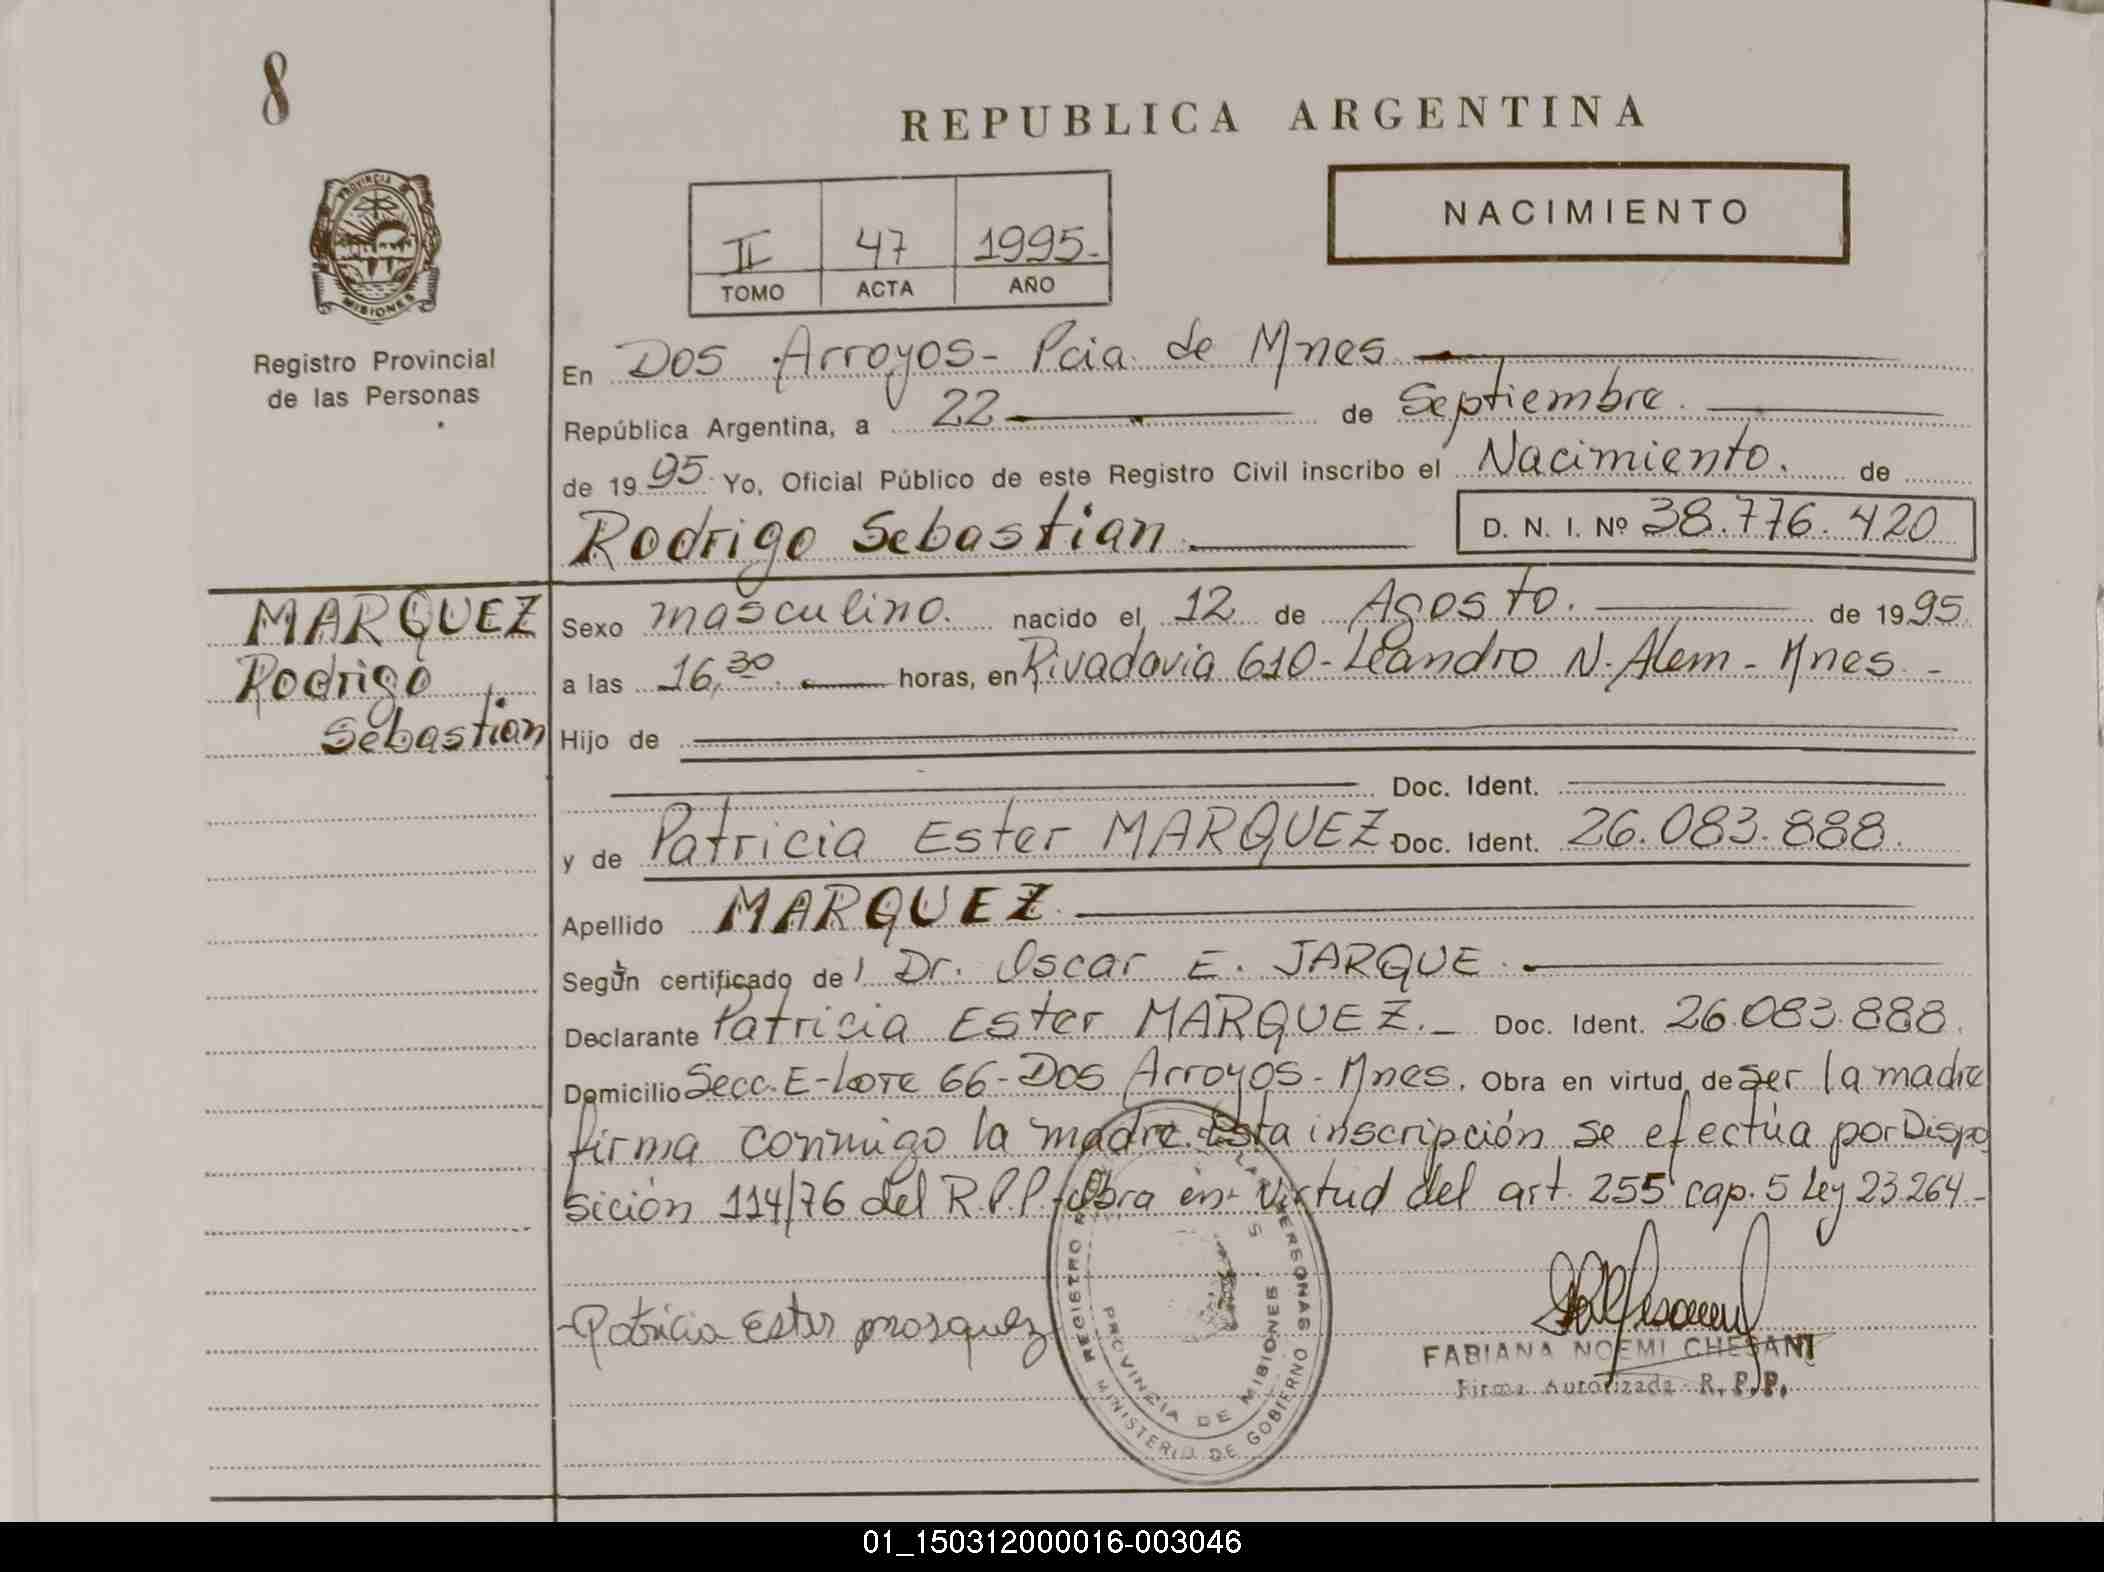 8
REPUBLICA ARGENTINA
NACIMIENTO
II 47 1995.-
TOMO ACTA AÑO
PROVINCIA DE
MISIONES
Registro Provincial
de las Personas
En Dos Arroyos- Pcia. de Mnes
República Argentina, a 22 de Septiembre.
de 1995. Yo, Oficial Público de este Registro Civil inscribo el Nacimiento. de
Rodrigo Sebastian D. N. I. Nº 38.776.420
MARQUEZ
Rodrigo
Sebastian
Sexo masculino. nacido el 12 de Agosto. de 1995
a las 16,30 horas, en Rivadavia 610- Leandro N. Alem - Mnes. -
Hijo de
Doc. Ident.
y de Patricia Ester MARQUEZ Doc. Ident. 26.083.888.
Apellido MARQUEZ
Según certificado de Dr. Oscar E. JARQUE.
Declarante Patricia Ester MARQUEZ._ Doc. Ident. 26.083.888.
Domicilio Secc. E-Lote 66- Dos Arroyos - Mnes. Obra en virtud de ser la madre
firma conmigo la madre. Esta inscripción se efectúa por Dispo
sición 114/76 del R.P.P. Obra en virtud del art. 255 cap. 5 Ley 23.264.-
Patricia Ester Marquez
REGISTRO PERSONAS
PROVINCIA DE MISIONES
MINISTERIO DE GOBIERNO
FABIANA NOEMI CHESANI
Firma Autorizada R.P.P.
01_150312000016-003046